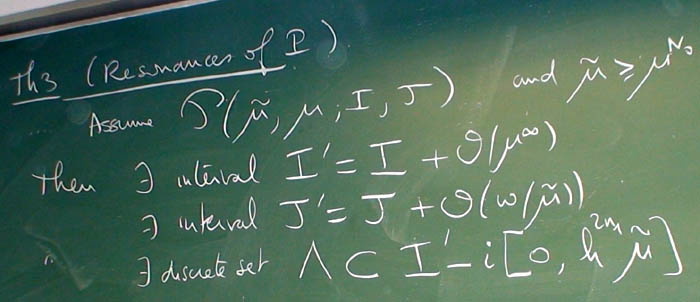 Th3 (Resonances of P).
Assume P(μ̃, μ, I, J) and μ̃ ≥ μ^N₀
then ∃ interval I' = I + O(μ^∞)
∃ interval J' = J + O(ω/μ̃))
" ∃ discrete set Λ ⊂ I' - i[0, h^2n μ̃]